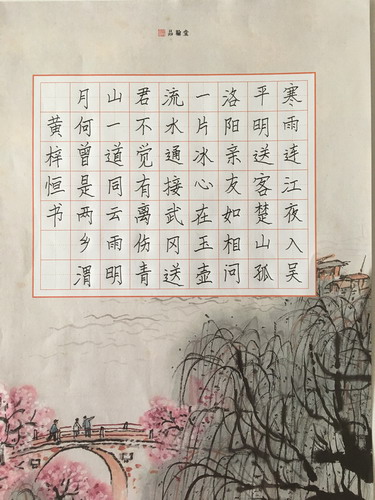 品翰堂
寒雨连江夜入吴
平明送客楚山孤
洛阳亲友如相问
一片冰心在玉壶
流水通接武冈送
君不觉有离伤青
山一道同云雨明
月何曾是两乡渭
黄梓恒书